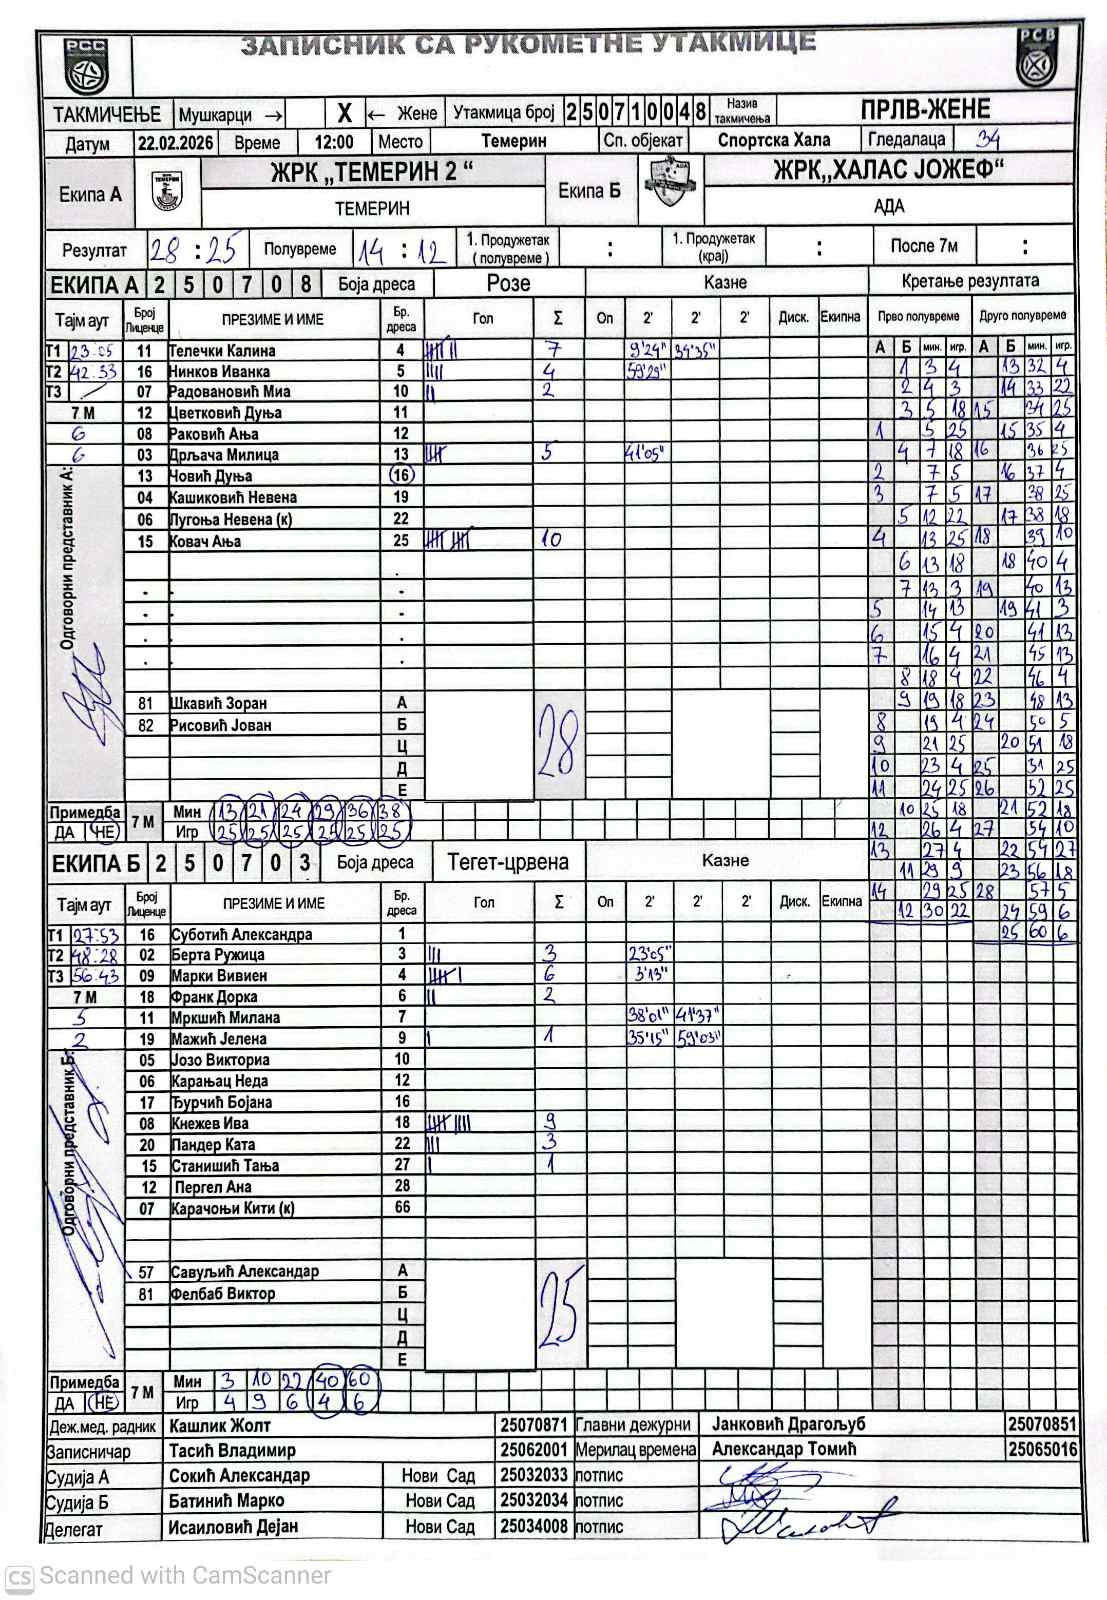 РСС
ЗАПИСНИК СА РУКОМЕТНЕ УТАКМИЦЕ
РСВ
ТАКМИЧЕЊЕ Мушкарци → X ← Жене Утакмица број 250710048 Назив такмичења ПРЛВ-ЖЕНЕ
Датум 22.02.2026 Време 12:00 Место Темерин Сп. објекат Спортска Хала Гледалаца 34
Екипа А ЖРК „ТЕМЕРИН 2 “ Екипа Б ЖРК„ХАЛАС ЈОЖЕФ“
ТЕМЕРИН АДА
Резултат 28 : 25 Полувреме 14 : 12 1. Продужетак ( полувреме ) : 1. Продужетак (крај) : После 7м :
ЕКИПА А 2 5 0 7 0 8 Боја дреса Розе Казне Кретање резултата
Тајм аут Број Лиценце ПРЕЗИМЕ И ИМЕ Бр. дреса Гол Σ Оп 2' 2' 2' Диск. Екипна Прво полувреме Друго полувреме
А Б мин. игр. А Б мин. игр.
Т1 23:05 11 Телечки Калина 4 7 9'24" 34'35"
Т2 42:33 16 Нинков Иванка 5 4 59'29"
Т3 07 Радовановић Миа 10 2
7 М 12 Цветковић Дуња 11
6 08 Раковић Ања 12
6 03 Дрљача Милица 13 5 41'05"
13 Човић Дуња 16
04 Кашиковић Невена 19
06 Лугоња Невена (к) 22
15 Ковач Ања 25 10
Одговорни представник А:
81 Шкавић Зоран А
82 Рисовић Јован Б
Ц
Д
Е
28
1 3 4 13 32 4
2 4 3 14 33 22
3 5 18 15 34 25
1 5 25 15 35 4
4 7 18 16 36 25
2 7 5 16 37 4
3 7 5 17 38 25
5 12 22 17 38 18
4 13 25 18 39 10
6 13 18 18 40 4
7 13 3 19 40 13
5 14 13 19 41 3
6 15 4 20 41 13
7 16 4 21 45 13
8 18 4 22 46 4
9 19 18 23 48 13
8 19 4 24 50 5
9 21 25 20 51 18
10 23 4 25 31 25
11 24 25 26 52 25
10 25 18 21 52 18
12 26 4 27 54 10
13 27 4 22 54 27
11 29 9 23 56 18
14 29 25 28 57 5
12 30 22 24 59 6
25 60 6
Примедба 7 М Мин 13 21 24 29 36 38
ДА НЕ Игр 25 25 25 25 25 25
ЕКИПА Б 2 5 0 7 0 3 Боја дреса Тегет-црвена Казне
Тајм аут Број Лиценце ПРЕЗИМЕ И ИМЕ Бр. дреса Гол Σ Оп 2' 2' 2' Диск. Екипна
Т1 27:53 16 Суботић Александра 1
Т2 48:28 02 Берта Ружица 3 3 23'05"
Т3 56:43 09 Марки Вивиен 4 6 3'13"
7 М 18 Франк Дорка 6 2
5 11 Мркшић Милана 7 38'01" 41'37"
2 19 Мажић Јелена 9 1 35'15" 59'03"
05 Јозо Викториа 10
06 Карањац Неда 12
17 Ђурчић Бојана 16
08 Кнежев Ива 18 9
20 Пандер Ката 22 3
15 Станишић Тања 27 1
12 Пергел Ана 28
07 Карачоњи Кити (к) 66
Одговорни представник Б:
57 Савуљић Александар А
81 Фелбаб Виктор Б
Ц
Д
Е
25
Примедба 7 М Мин 3 10 22 40 60
ДА НЕ Игр 4 9 6 4 6
Деж.мед. радник Кашлик Жолт 25070871 Главни дежурни Јанковић Драгољуб 25070851
Записничар Тасић Владимир 25062001 Мерилац времена Александар Томић 25065016
Судија А Сокић Александар Нови Сад 25032033 потпис
Судија Б Батинић Марко Нови Сад 25032034 потпис
Делегат Исаиловић Дејан Нови Сад 25034008 потпис
CS Scanned with CamScanner